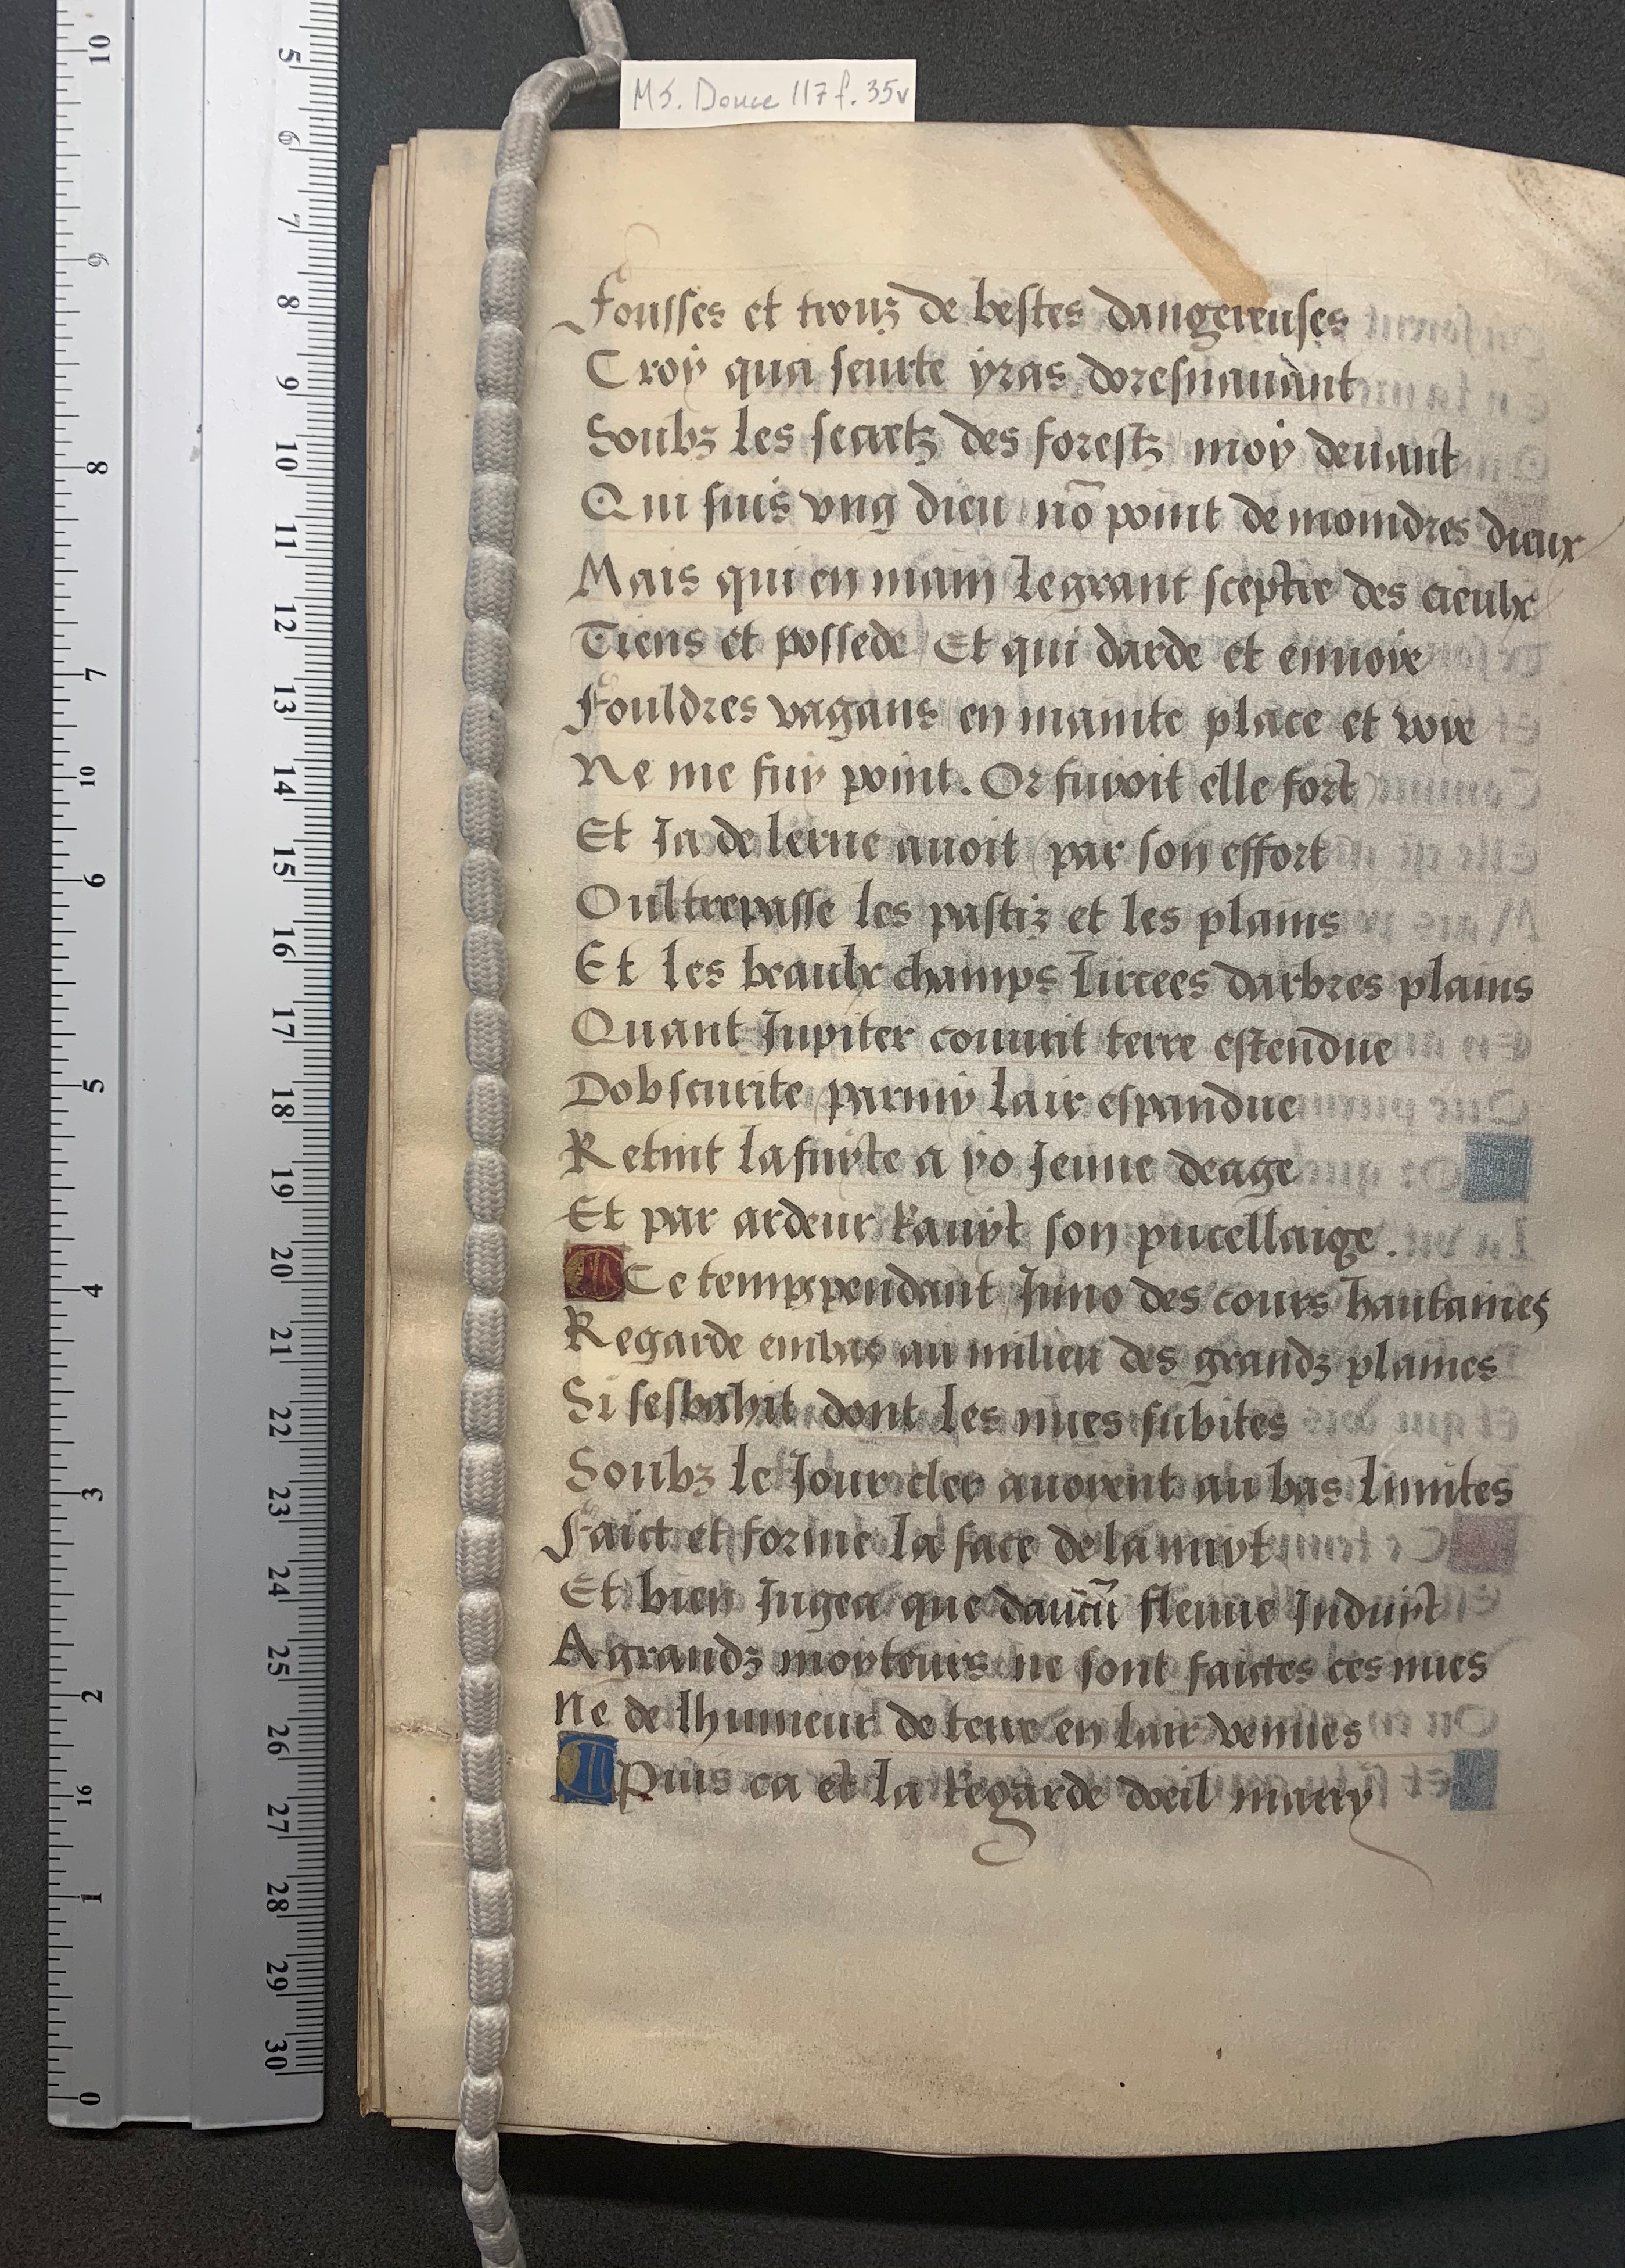 MS. Douce 117 f. 35v
Fousses et trouz de bestes dangereuses
Croy qua seurte yras doresnauant
Soubz les secretz des forestz moy deuant
Qui suis vng dieu nō point de moindres dieux
Mais qui en main le grant sceptre des cieulx
Tiens et possede Et qui darde et enuoie
Fouldres vagans en mainte place et voie
Ne me fuy point. Or fuyoit elle fort
Et Ja de lerne auoit par son effort
Oultrepasse les pastiz et les plains
Et les beaulx champs Lircees darbres plains
Quant Jupiter couurit terre estendue
Dobscurite parmy lair espandue
Retint la fuyte a yo Jeune deage
Et par ardeur Rauyt son pucellaige.
Ce temps pendant Juno des cours haultaines
Regarde embas au milieu des grandz plaines
Si sesbahit dont les nues subites
Soubz le Jour cler auoyent au bas limites
Faict et forme la face de la nuyt
Et bien Jugea que daucū fleuue Induyt
A grandz moyteurs ne sont faictes ces nues
Ne de lhumeur de terre en lair venues
Puis ca et la Regarde doeil marry